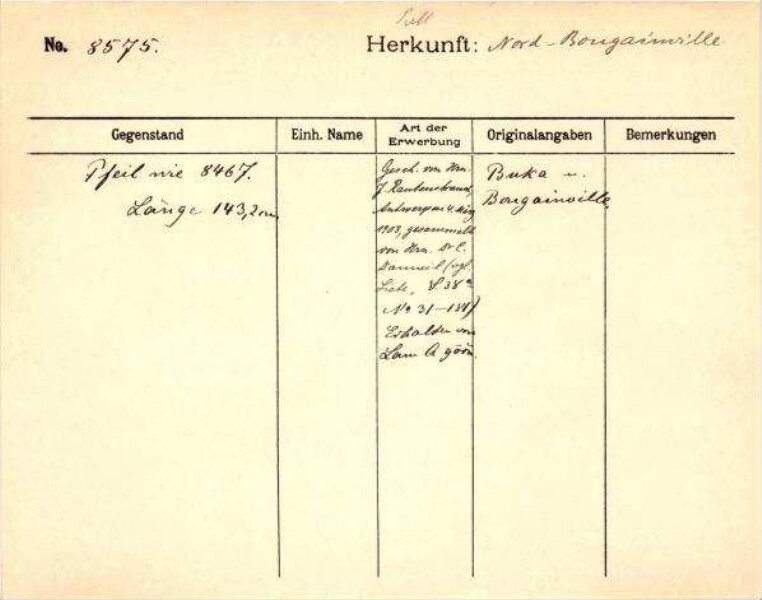 No. 8575.
Herkunft: Nord-Bougainville
Gegenstand
Einh. Name
Art der Erwerbung
Originalangaben
Bemerkungen
Pfeil wie 8467.
Länge 143,2 cm
Gesch. von Hrn.
J. Rautenstrauch,
Antwerpen 4.
1903, gesammelt
von Hrn. Dr C.
(vgl.
Liste, S. 38a
No 31-187)
Erhalten von
Buka u.
Bougainville,